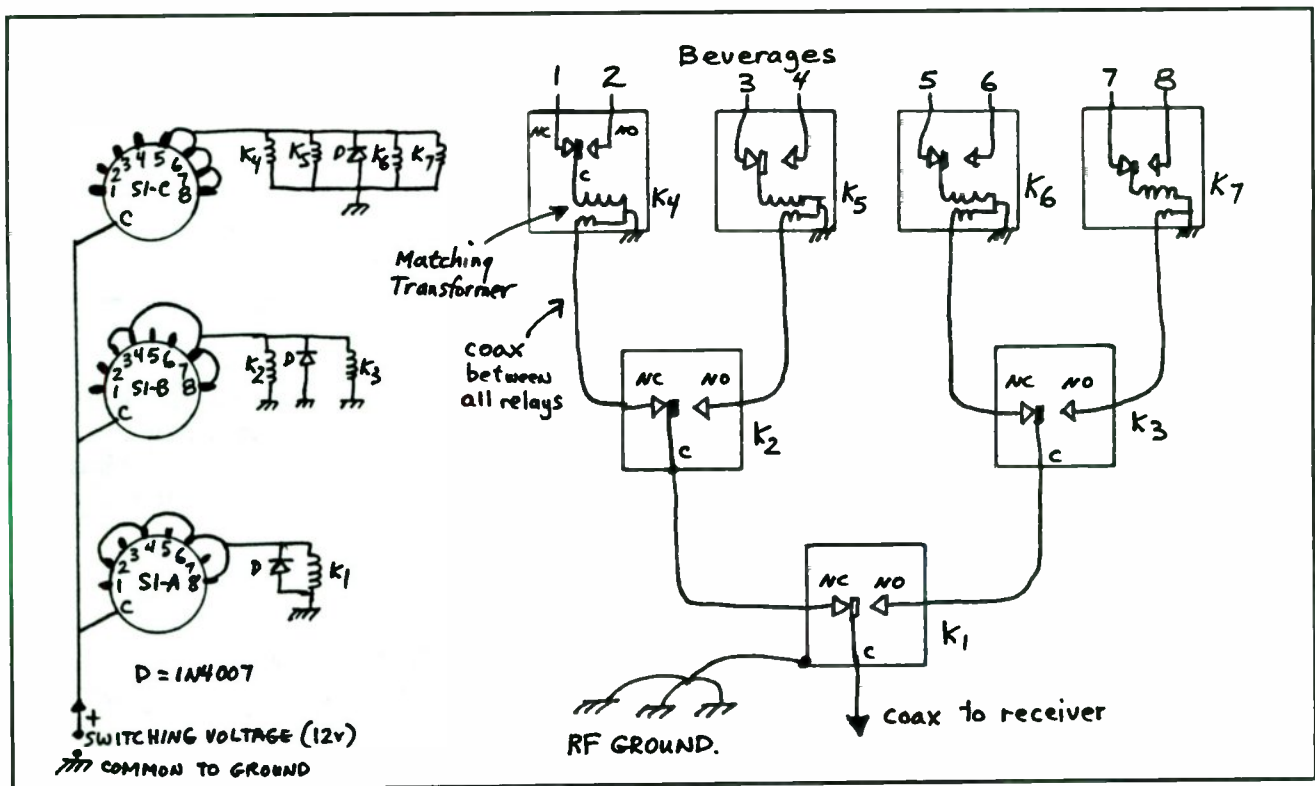 Beverages
1 2 3 4 5 6 7 8
NC NO
C
K4 K5 K6 K7
Matching
Transformer
coax
between
all relays
NC NO
C
K2
NC NO
C
K3
NC NO
C
K1
coax to receiver
RF GROUND.
1 2 3 4 5 6 7 8
S1-C
C
K4 K5 D K6 K7
1 2 3 4 5 6 7 8
S1-B
C
K2 D K3
1 2 3 4 5 6 7 8
S1-A
C
D K1
D = 1N4007
+
SWITCHING VOLTAGE (12v)
COMMON TO GROUND